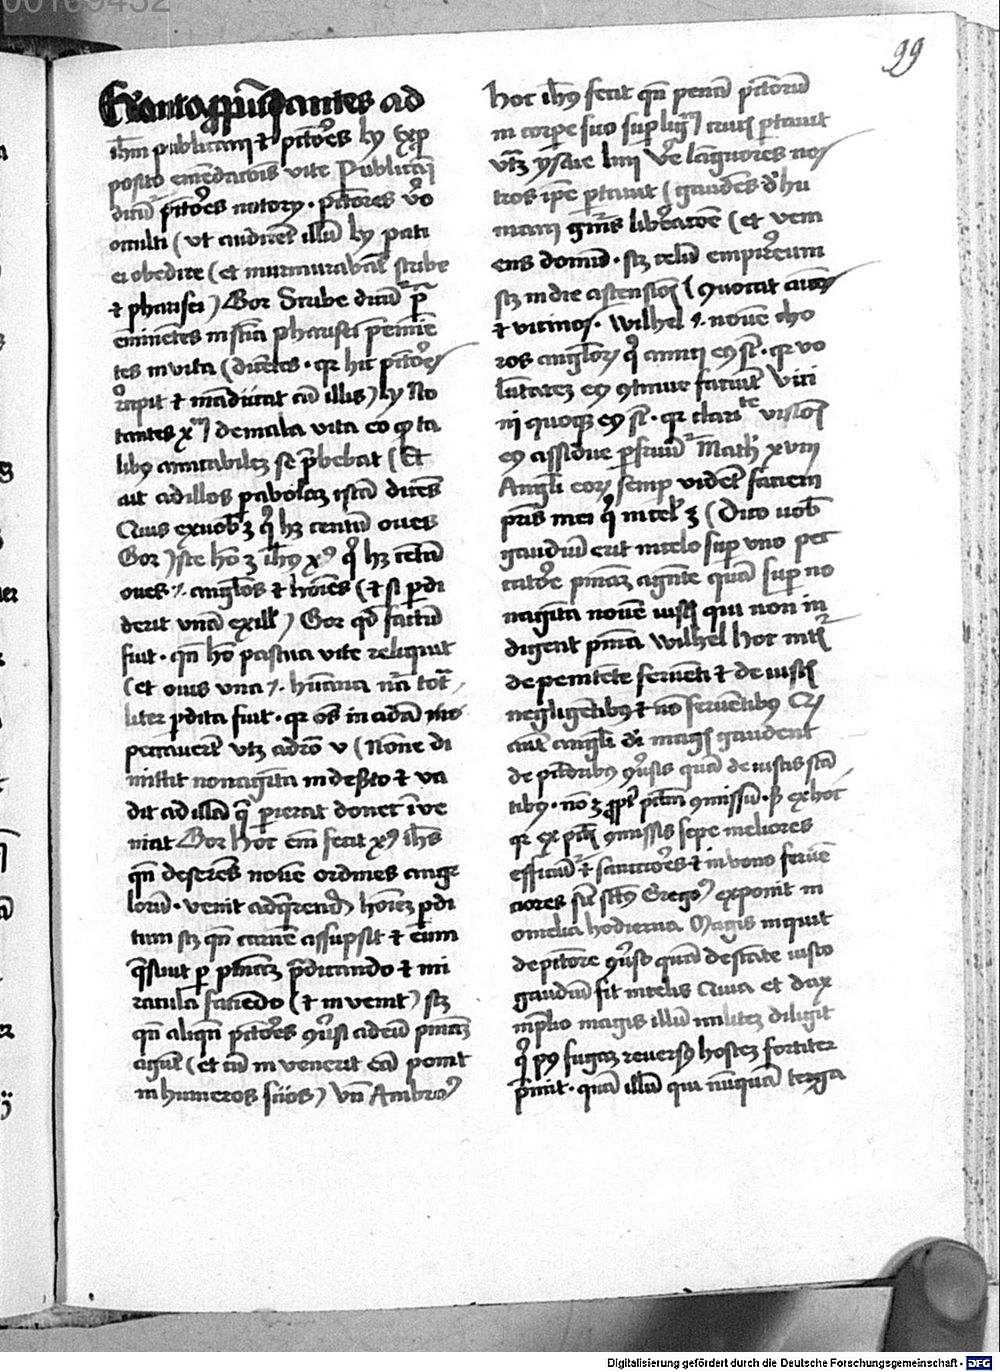 00109432
99
Erant appropinquantes ad
ihm publicani et pctores ly exp
posito emendacois vite Publicani
dicunt pctores notory . pctores vo
occulti ( ut audirent illum ly pati
ei obedire ( et murmurabant scribe
et pharisei ) Gor Scribe dicunt pre
eminentes in scia pharisei preminen
tes in vita ( dicentes . qr hic pctores
recipit et manducat cum illis ) ly No
tantes xm de mala vita eo qd ta
libus amicabilem se prebebat ( Et
ait ad illos parabolam istam dicens
Quis ex vobis est qui habet centum oues
Gor Iste homo est ihus xps qui habet centum
oues i. anglos et hoies ( et si perdi
derit unam ex illis ) Gor qd factum
fuit . qn homo pascua vite reliquit
( et ouis una i. humana natura tota
liter perdita fuit . qr oes in adam
peccaverunt utz ad ro v ( Nonne di
mittit nonaginta in deserto et va
dit ad illam que perierat donec inve
niat Gor hoc enim fecit xps ihs
qn deserens novem ordines ange
lorum . venit ad querendum hominem perdi
tum scz qn carnem assupsit et eum
quesiuit per pniam predicando et mi
racula faciendo ( et invenit ) scz
qn aliqn pctores conversi ad eum pniam
agunt ( et cum invenerit eam ponit
in humeros suos ) Un Ambro
hoc ihus fecit qn penam pctorum
in corpe suo super lignum crucis portavit
utz ysaie liii Vere languores nos
tros ipse portavit ( gaudens de hu
mani generis liberacoe ( et veni
ens domum . scz celum empireum
scz in die ascensionis ( Quocat amicos
et vicinos . Wilhel i. novem cho
ros anglorum qui amici eius sunt . qr vo
luntatem eius continue faciunt vici
ni quoque eius sunt . qr claritate visionis
eius assidue perfruuntur Math xviii
Angeli eorum semper vident faciem
patris mei qui in celis est ( Dico vobis
gaudium erit in celo super uno pec
catore pniam agente quam super no
naginta novem iustis qui non in
digent pnia Wilhel hoc intelligitur
de penitente ferventi et de iustis
negligentibus et non ferventibus
autem angeli dei magis gaudent
de peccatoribus conversis quam de iustis stan
tibus . non est propter peccatum commissum . sed ex hoc
qr ex peccatis commissis sepe meliores
efficiuntur et sanctiores et in bono ferven
ciores sunt sicut Gregorius exponit in
omelia hodierna Magis inquit
de pctore converso quam de stante iusto
gaudium fit in celis Quia et dux
in prelio magis illum militem diligit
qui post fugam reversus hostem fortiter
premit . quam illum qui nunquam terga
Digitalisierung gefördert durch die Deutsche Forschungsgemeinschaft - DFG